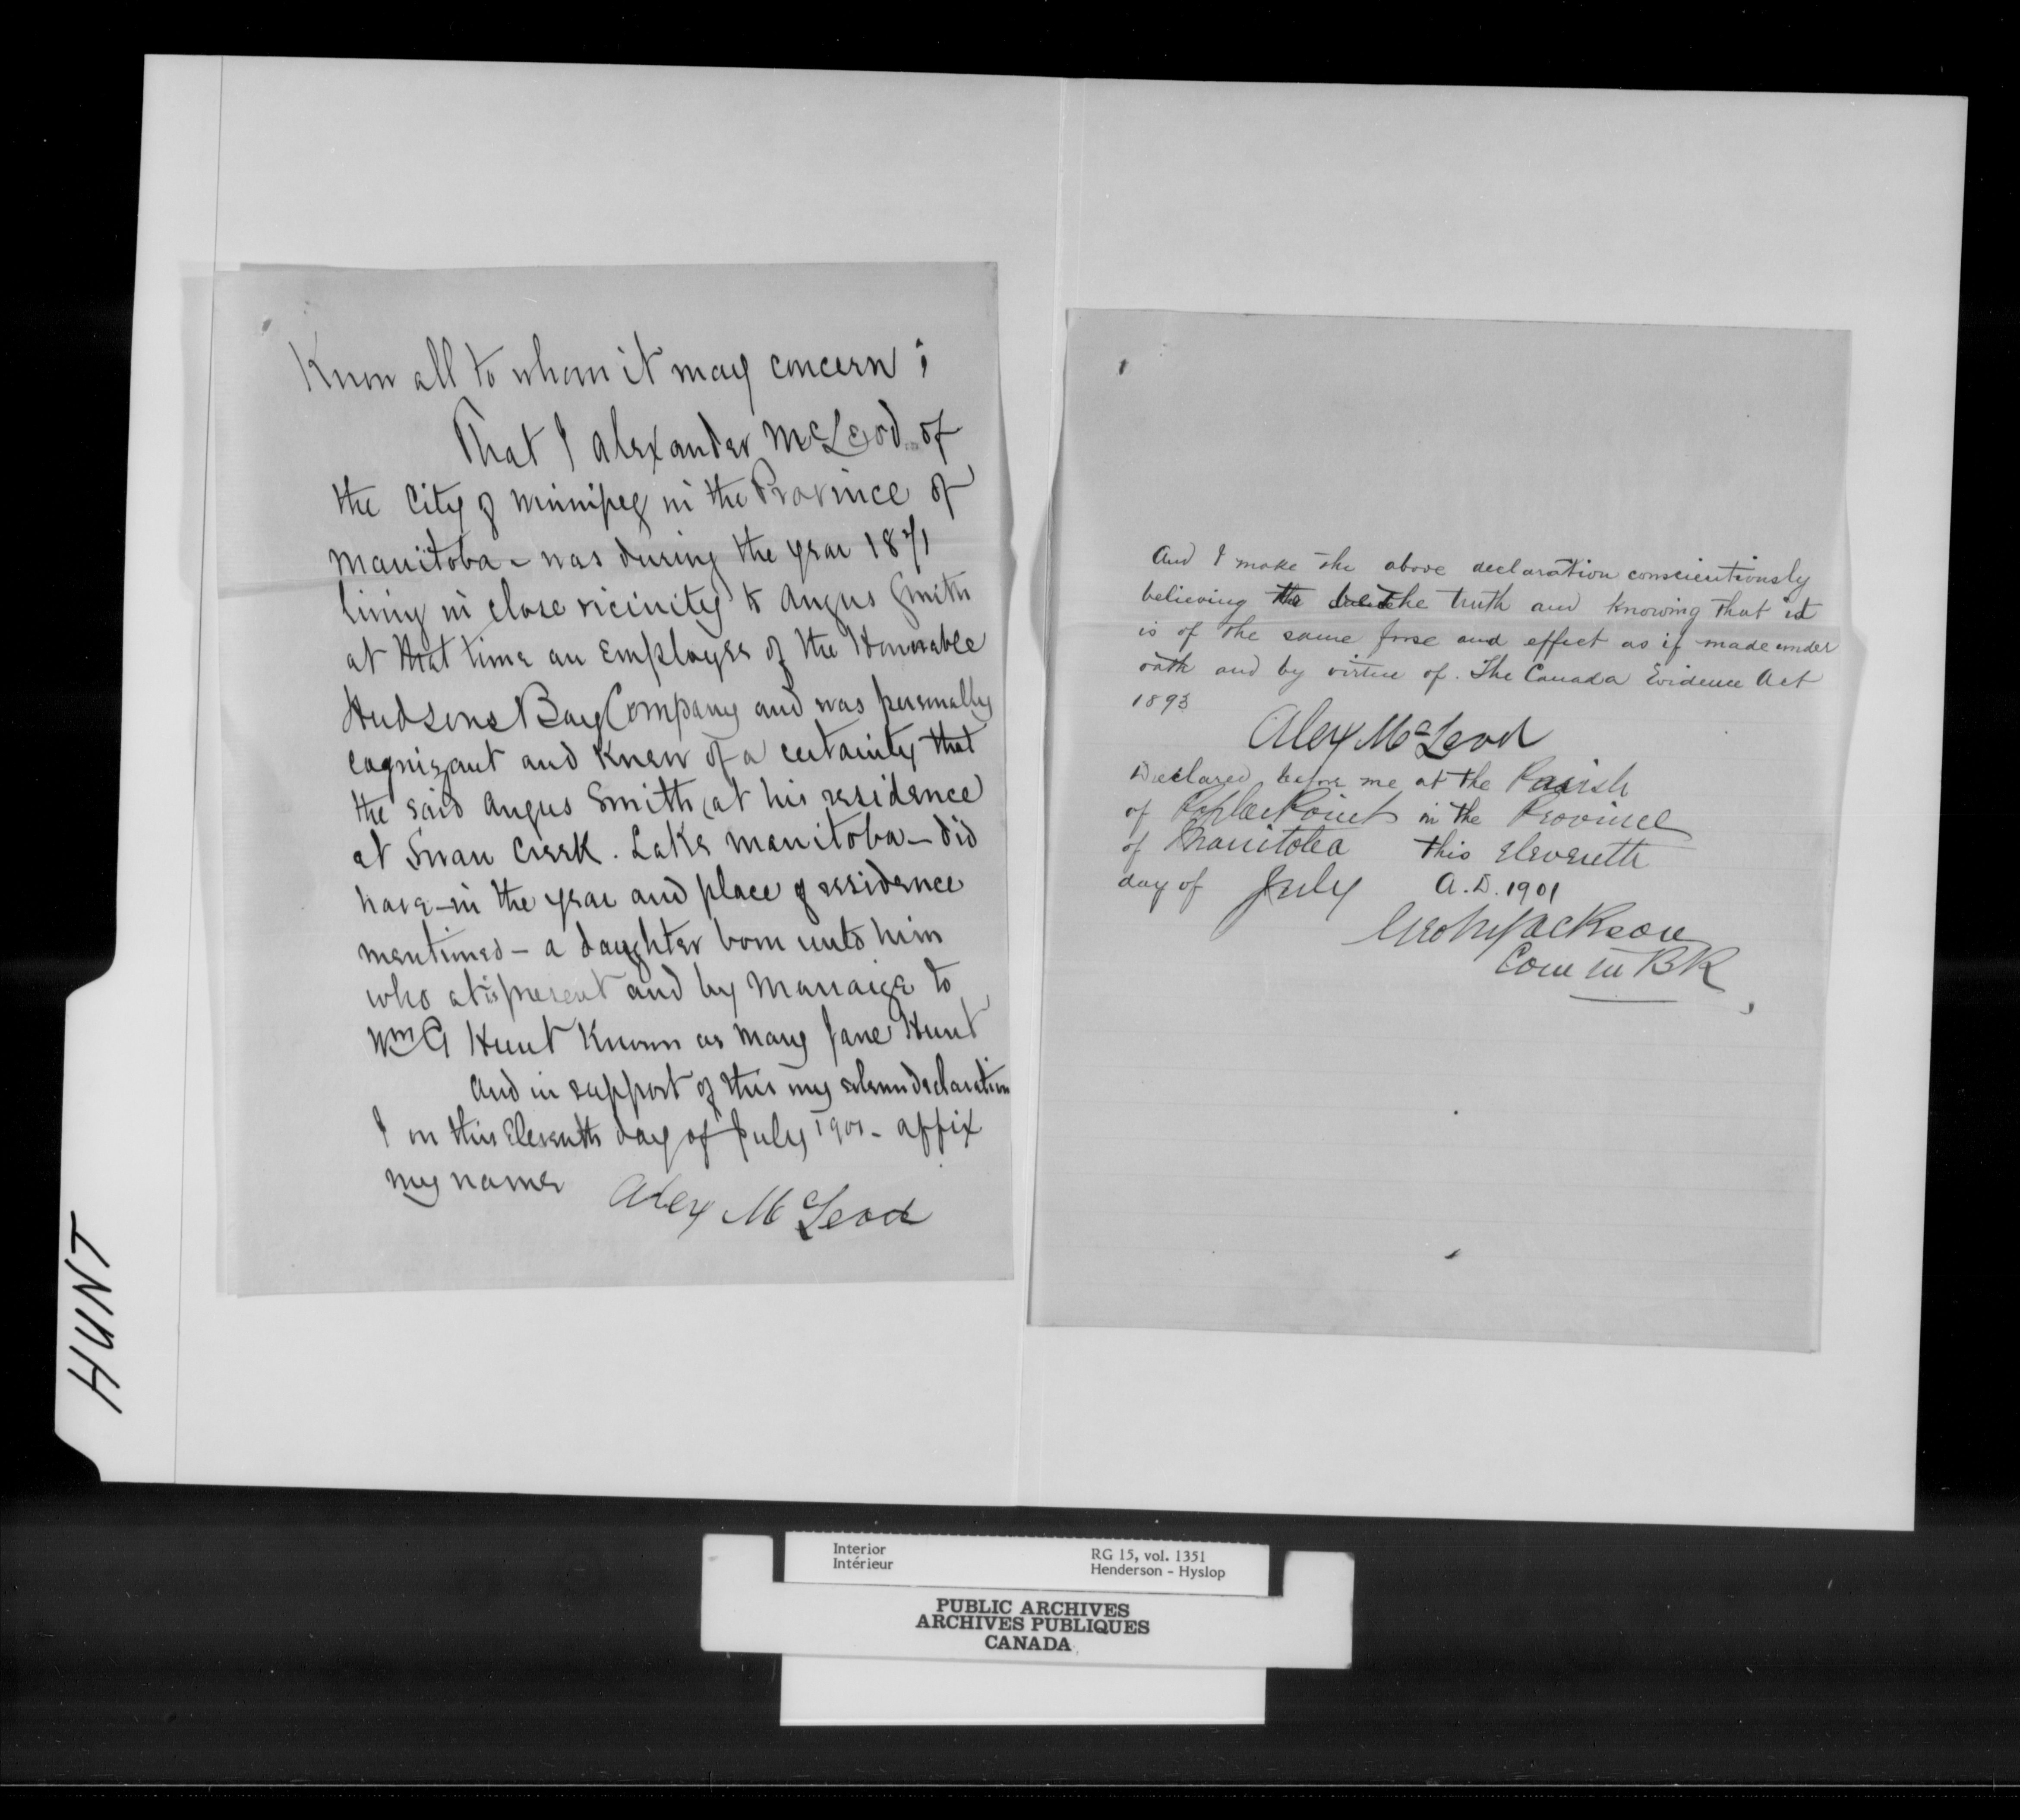 Know all to whom it may concern ;
That I Alexander McLeod of
the City of Winnipeg in the Province of
Manitoba - was during the year 1871
living in close vicinity to Angus Smith
at that time an Employee of the Honorable
Hudsons Bay Company and was personally
cognizant and Knew of a certainity that
the said Angus Smith, at his residence
at Swan Creek. Lake Manitoba - did
have - in the year and place of residence
mentioned - a daughter born unto him
who at present and by Marraige to
Wm G Hunt Known as Mary Jane Hunt
And in support of this my solemn declaration
I on this Eleventh day of July 1901 - affix
my name
Alex McLeod
And I make the above declaration conscientiously
believing the truth and knowing that it
is of the same forse and effect as if made under
oath and by virtue of. The Canada Evidence Act
1893
Alex McLeod
Declared before me at the Parish
of Poplar Point in the Province
of Manitoba this eleventh
day of July A.D. 1901
Jackson
Com in BR
HUNT
Interior
Intérieur
RG 15, vol. 1351
Henderson - Hyslop
PUBLIC ARCHIVES
ARCHIVES PUBLIQUES
CANADA